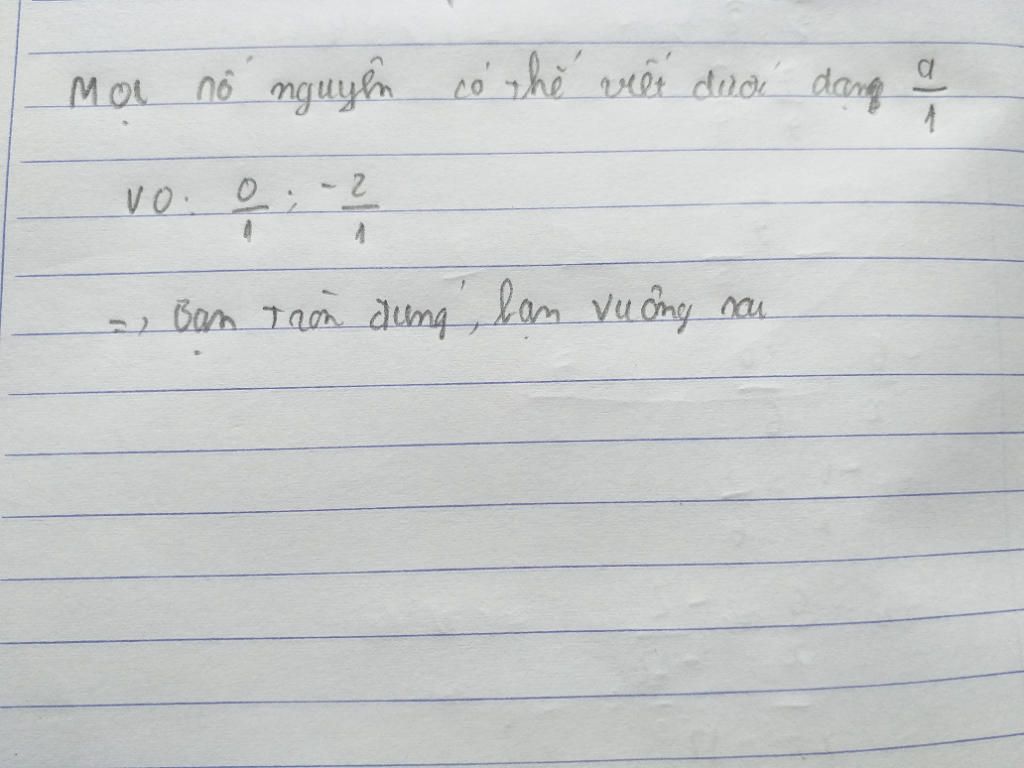 Mọi số nguyên có thể viết dưới dạng a/1
VD: 0/1 ; -2/1
=> Bạn Tròn đúng, bạn Vuông sai